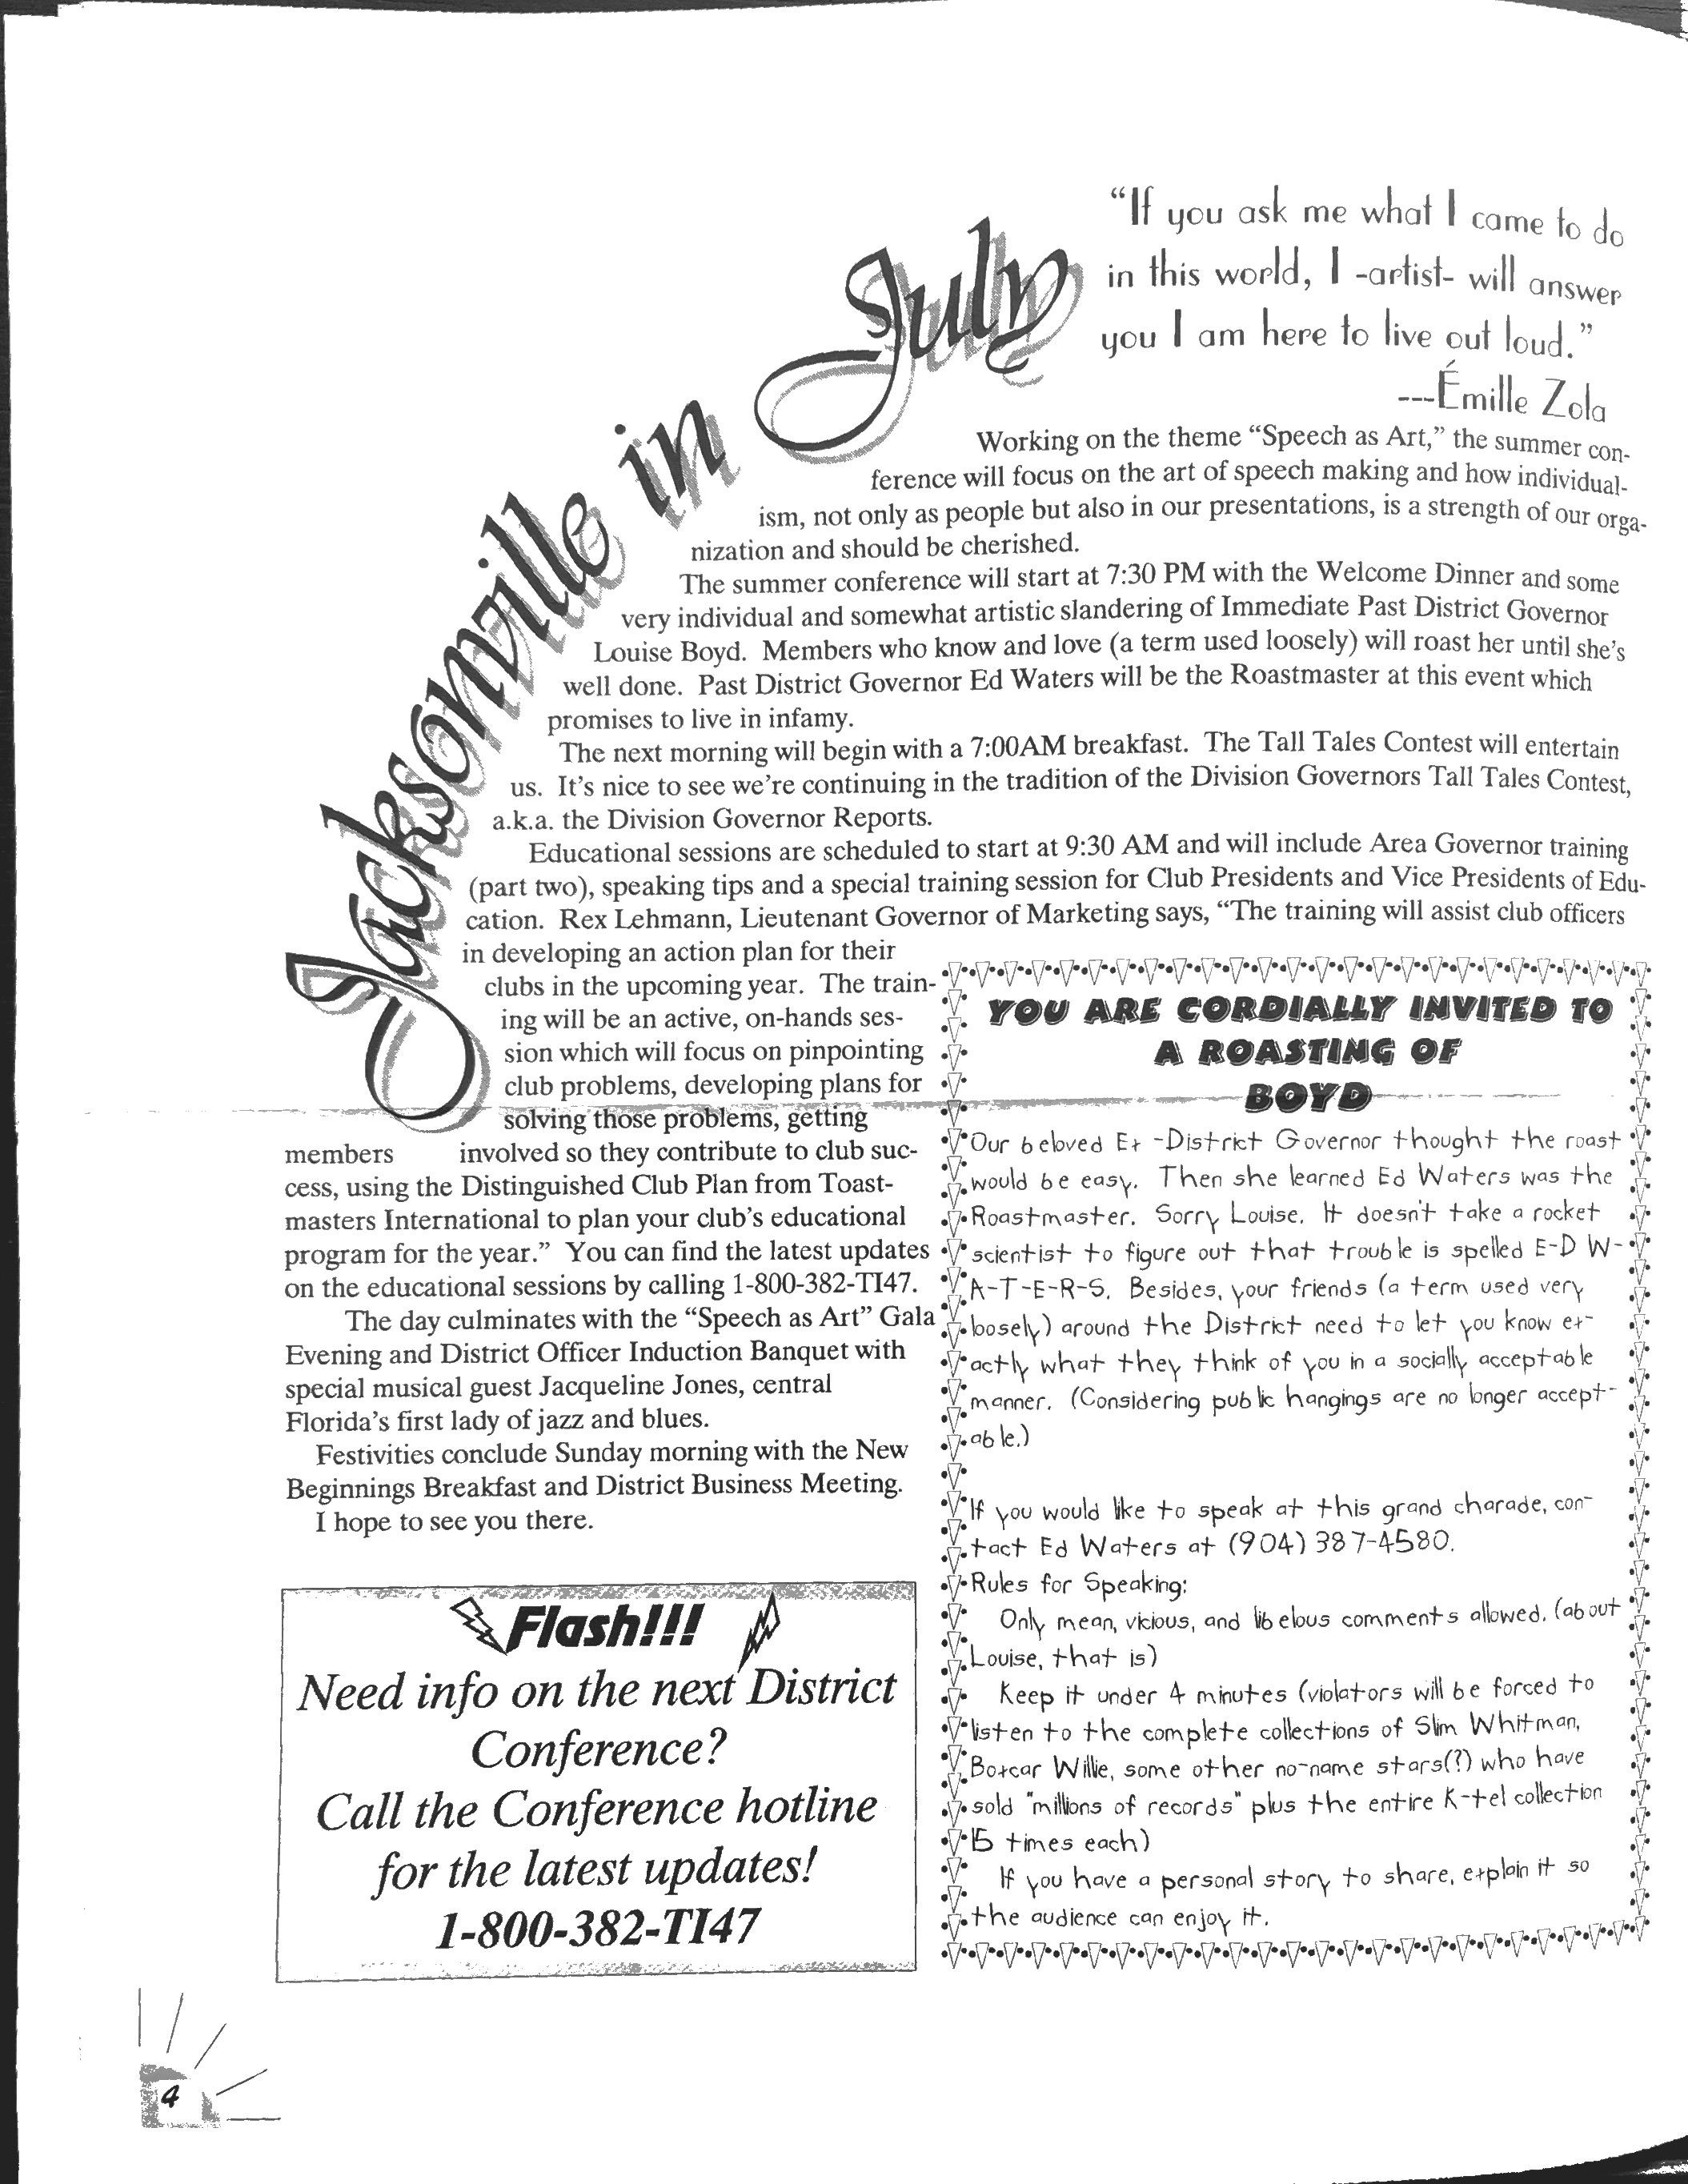 Jacksonville in July
“If you ask me what I came to do
in this world, I -artist- will answer
you I am here to live out loud.”
---Émille Zola
Working on the theme “Speech as Art,” the summer con-
ference will focus on the art of speech making and how individual-
ism, not only as people but also in our presentations, is a strength of our orga-
nization and should be cherished.
The summer conference will start at 7:30 PM with the Welcome Dinner and some
very individual and somewhat artistic slandering of Immediate Past District Governor
Louise Boyd. Members who know and love (a term used loosely) will roast her until she’s
well done. Past District Governor Ed Waters will be the Roastmaster at this event which
promises to live in infamy.
The next morning will begin with a 7:00AM breakfast. The Tall Tales Contest will entertain
us. It’s nice to see we’re continuing in the tradition of the Division Governors Tall Tales Contest,
a.k.a. the Division Governor Reports.
Educational sessions are scheduled to start at 9:30 AM and will include Area Governor training
(part two), speaking tips and a special training session for Club Presidents and Vice Presidents of Edu-
cation. Rex Lehmann, Lieutenant Governor of Marketing says, “The training will assist club officers
in developing an action plan for their
clubs in the upcoming year. The train-
ing will be an active, on-hands ses-
sion which will focus on pinpointing
club problems, developing plans for
solving those problems, getting
members involved so they contribute to club suc-
cess, using the Distinguished Club Plan from Toast-
masters International to plan your club’s educational
program for the year.” You can find the latest updates
on the educational sessions by calling 1-800-382-TI47.
The day culminates with the “Speech as Art” Gala
Evening and District Officer Induction Banquet with
special musical guest Jacqueline Jones, central
Florida’s first lady of jazz and blues.
Festivities conclude Sunday morning with the New
Beginnings Breakfast and District Business Meeting.
I hope to see you there.
Flash!!!
Need info on the next District
Conference?
Call the Conference hotline
for the latest updates!
1-800-382-TI47
YOU ARE CORDIALLY INVITED TO
A ROASTING OF
BOYD
Our beloved Ex-District Governor thought the roast
would be easy. Then she learned Ed Waters was the
Roastmaster. Sorry Louise. It doesn't take a rocket
scientist to figure out that trouble is spelled E-D W-
A-T-E-R-S. Besides, your friends (a term used very
loosely) around the District need to let you know ex-
actly what they think of you in a socially acceptable
manner. (Considering public hangings are no longer accept-
able.)
If you would like to speak at this grand charade, con-
tact Ed Waters at (904) 387-4580.
Rules for Speaking:
Only mean, vicious, and libelous comments allowed. (about
Louise, that is)
Keep it under 4 minutes (violators will be forced to
listen to the complete collections of Slim Whitman,
Boxcar Willie, some other no-name stars(?) who have
sold "millions of records" plus the entire K-tel collection
15 times each)
If you have a personal story to share, explain it so
the audience can enjoy it.
4